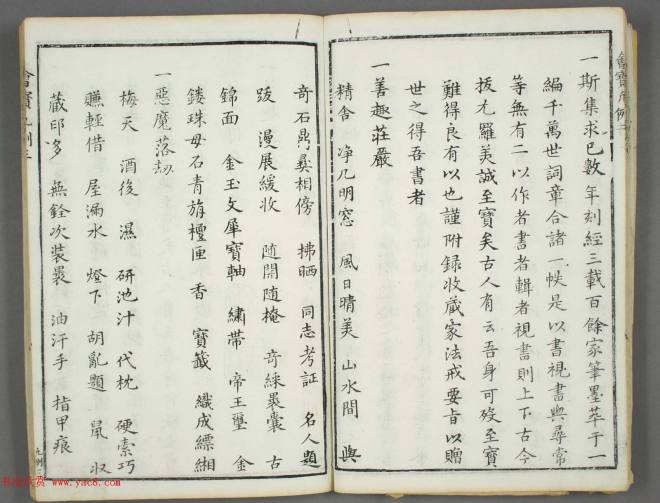 一斯集求已數年刻經三載百餘家筆墨萃于一
編千萬世詞章合諸一帙是以書視書與尋常
等無有二以作者書者輯者視書則上下古今
拔尤羅美誠至寶矣古人有云吾身可歿至寶
難得良有以也謹附錄收藏家法戒要旨以贈
世之得吾書者
一善趣莊嚴
精舍 净几明窓 風日晴美 山水間 與
奇石鼎彝相傍 拂晒 同志考証 名人題
跋 漫展緩收 随開随掩 奇綵裹囊 古
錦面 金玉文犀寳軸 繡帶 帝王璽 金
鏤珠母石青旃檀匣 香 寳籖 織成縹緗
一惡魔落劫
梅天 酒後 濕 硯池汁 代枕 硬索巧
賺輕借 屋漏水 燈下 胡亂題 鼠 収
藏印多 無銓次裝裹 油汗手 指甲痕
www.yac8.com